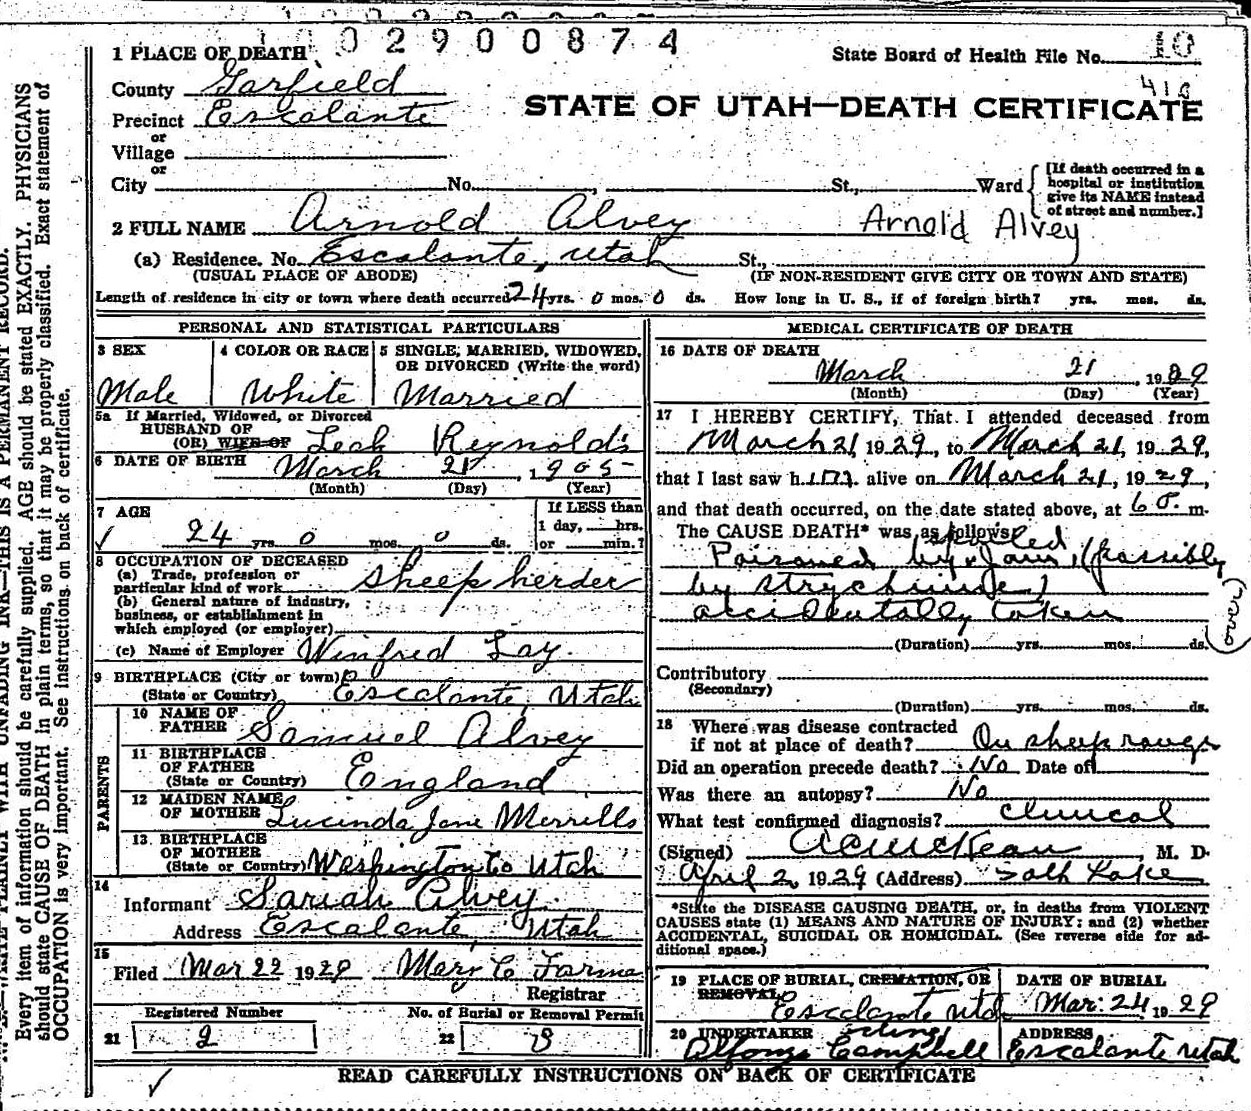 0 2 9 0 0 8 7 4
1 PLACE OF DEATH
State Board of Health File No. 10
County Garfield
418
Precinct Escalante
STATE OF UTAH—DEATH CERTIFICATE
or
Village
or
City No. , St., Ward
[If death occurred in a
hospital or institution
give its NAME instead
of street and number.]
2 FULL NAME Arnold Alvey Arnold Alvey
(a) Residence. No. Escalante, Utah St.,
(USUAL PLACE OF ABODE) (IF NON-RESIDENT GIVE CITY OR TOWN AND STATE)
Length of residence in city or town where death occurred 24 yrs. 0 mos. 0 ds. How long in U. S., if of foreign birth? yrs. mos. ds.
PERSONAL AND STATISTICAL PARTICULARS
3 SEX 4 COLOR OR RACE 5 SINGLE, MARRIED, WIDOWED,
OR DIVORCED (Write the word)
Male White Married
5a If Married, Widowed, or Divorced
HUSBAND OF
(OR) WIFE OF Leah Reynolds
6 DATE OF BIRTH March 21, 1905
(Month) (Day) (Year)
7 AGE
If LESS than
1 day, hrs.
or min.?
24 yrs. 0 mos. 0 ds.
8 OCCUPATION OF DECEASED
(a) Trade, profession or
particular kind of work Sheep herder
(b) General nature of industry,
business, or establishment in
which employed (or employer)
(c) Name of Employer Winfred Lay.
9 BIRTHPLACE (City or town)
(State or Country) Escalante, Utah
PARENTS
10 NAME OF
FATHER Samuel Alvey
11 BIRTHPLACE
OF FATHER
(State or Country) England
12 MAIDEN NAME
OF MOTHER Lucinda Jane Merrills
13 BIRTHPLACE
OF MOTHER
(State or Country) Washington Co Utah
14
Informant Sariah Alvey
Address Escalante, Utah
15
Filed Mar 22 1929 Mary C
Registrar
Registered Number No. of Burial or Removal Permit
21 2 22 8
MEDICAL CERTIFICATE OF DEATH
16 DATE OF DEATH
March 21, 1929
(Month) (Day) (Year)
17 I HEREBY CERTIFY, That I attended deceased from
March 21 1929, to March 21, 1929,
that I last saw him alive on March 21, 1929,
and that death occurred, on the date stated above, at m.
The CAUSE DEATH* was as follows:
spoiled
Poisoned by Jam, (possibly
by strychnine)
accidentally taken
(over)
(Duration) yrs. mos. ds.
Contributory
(Secondary)
(Duration) yrs. mos. ds.
18 Where was disease contracted
if not at place of death? On sheep range
Did an operation precede death? No Date of
Was there an autopsy? No
What test confirmed diagnosis? Clinical
(Signed) , M. D.
April 2, 1929 (Address) Salt Lake
*State the DISEASE CAUSING DEATH, or, in deaths from VIOLENT
CAUSES state (1) MEANS AND NATURE OF INJURY; and (2) whether
ACCIDENTAL, SUICIDAL OR HOMICIDAL. (See reverse side for ad-
ditional space.)
19 PLACE OF BURIAL, CREMATION, OR
REMOVAL
DATE OF BURIAL
Escalante Utah Mar. 24 1929
20 UNDERTAKER ADDRESS
Alfonzo Campbell Escalante Utah
READ CAREFULLY INSTRUCTIONS ON BACK OF CERTIFICATE
UNFADING INK—THIS IS A PERMANENT RECORD.
Every item of information should be carefully supplied. AGE should be stated EXACTLY. PHYSICIANS
should state CAUSE OF DEATH in plain terms, so that it may be properly classified. Exact statement of
OCCUPATION is very important. See instructions on back of certificate.